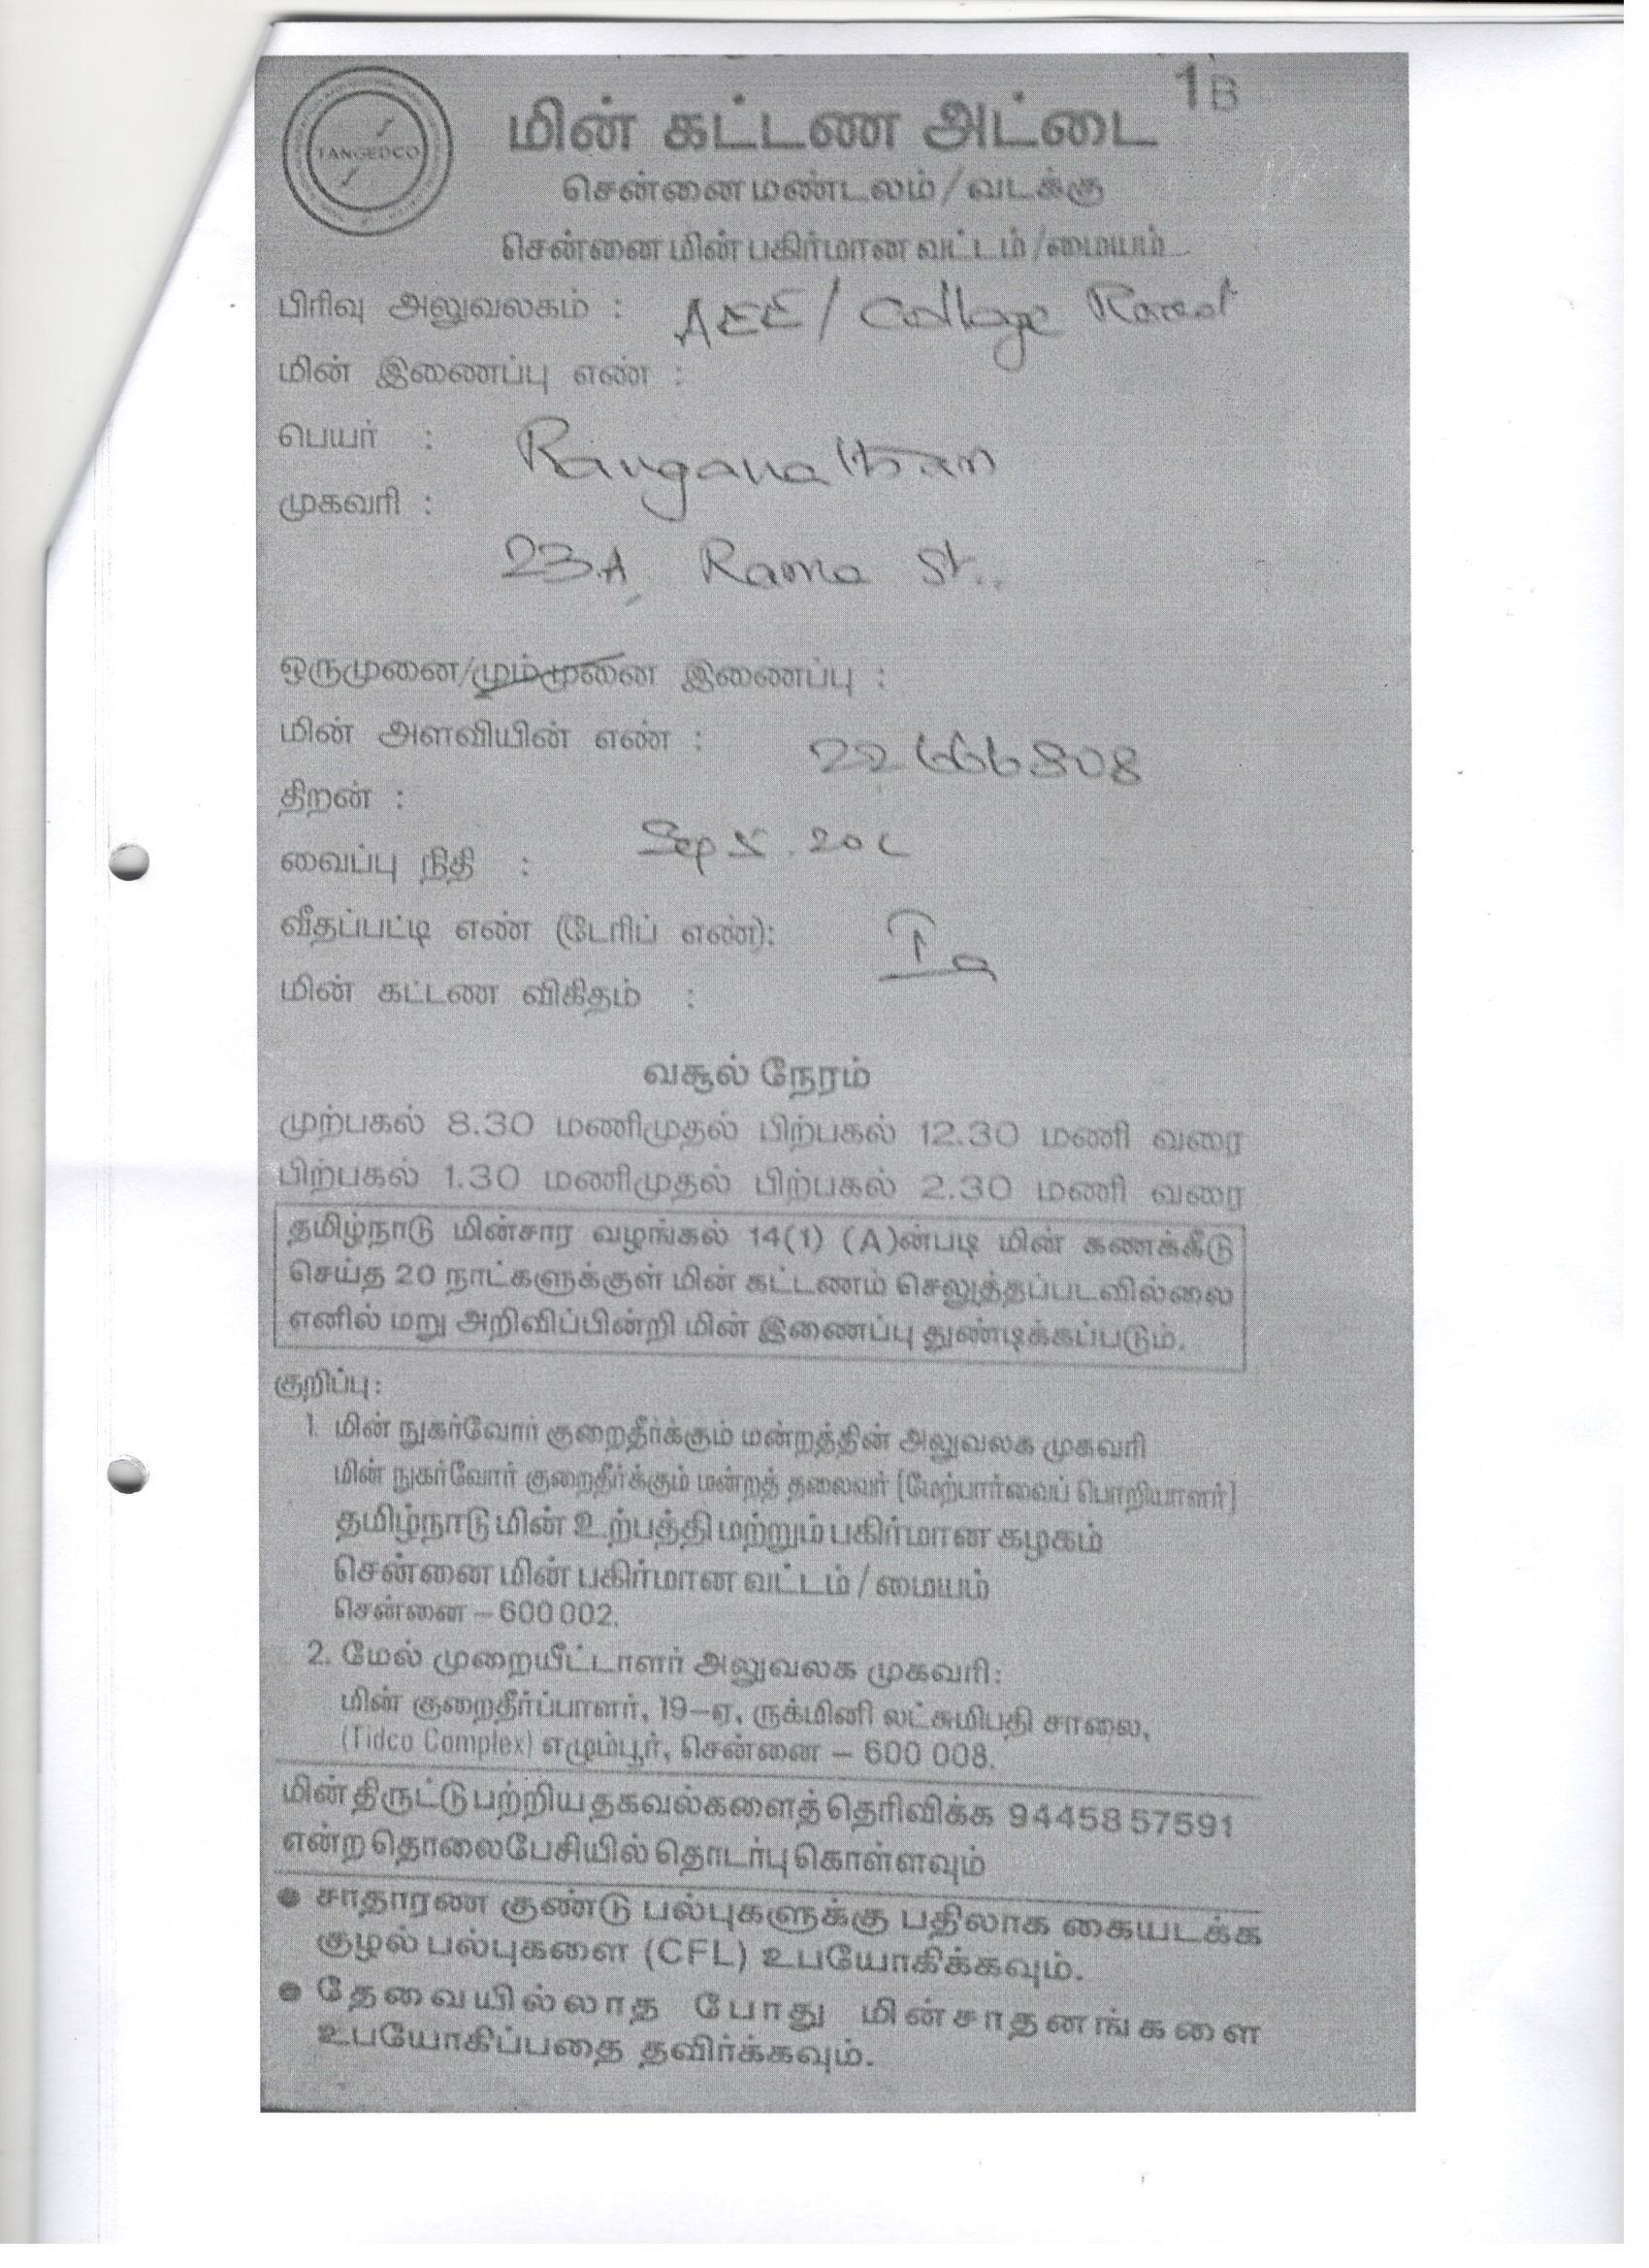 1B
TANGEDCO
மின் கட்டண அட்டை
சென்னை மண்டலம்/வடக்கு
சென்னை மின் பகிர்மான வட்டம்/மையம்
பிரிவு அலுவலகம் : AEE/ College Road
மின் இணைப்பு எண் :
பெயர் : Ranganathan
முகவரி :
23.A, Rama St..
ஒருமுனை/மும்முனை இணைப்பு :
மின் அளவியின் எண் : 22666808
திறன் :
வைப்பு நிதி :
வீதப்பட்டி எண் (டேரிப் எண்): Ia
மின் கட்டண விகிதம் :
வசூல் நேரம்
முற்பகல் 8.30 மணிமுதல் பிற்பகல் 12.30 மணி வரை
பிற்பகல் 1.30 மணிமுதல் பிற்பகல் 2.30 மணி வரை
தமிழ்நாடு மின்சார வழங்கல் 14(1) (A)ன்படி மின் கணக்கீடு
செய்த 20 நாட்களுக்குள் மின் கட்டணம் செலுத்தப்படவில்லை
எனில் மறு அறிவிப்பின்றி மின் இணைப்பு துண்டிக்கப்படும்.
குறிப்பு:
1. மின் நுகர்வோர் குறைதீர்க்கும் மன்றத்தின் அலுவலக முகவரி
மின் நுகர்வோர் குறைதீர்க்கும் மன்றத் தலைவர் [மேற்பார்வைப் பொறியாளர்]
தமிழ்நாடு மின் உற்பத்தி மற்றும் பகிர்மான கழகம்
சென்னை மின் பகிர்மான வட்டம்/மையம்
சென்னை – 600 002.
2. மேல் முறையீட்டாளர் அலுவலக முகவரி:
மின் குறைதீர்ப்பாளர், 19–ஏ, ருக்மினி லட்சுமிபதி சாலை,
(Tidco Complex) எழும்பூர், சென்னை – 600 008.
மின் திருட்டு பற்றிய தகவல்களைத் தெரிவிக்க 94458 57591
என்ற தொலைபேசியில் தொடர்பு கொள்ளவும்
● சாதாரண குண்டு பல்புகளுக்கு பதிலாக கையடக்க
குழல் பல்புகளை (CFL) உபயோகிக்கவும்.
● தேவையில்லாத போது மின்சாதனங்களை
உபயோகிப்பதை தவிர்க்கவும்.